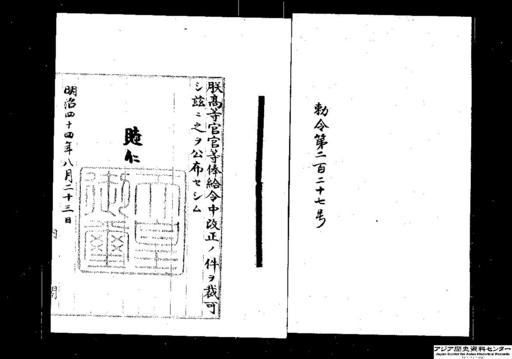 勅令第二百二十七号
朕高等官官等俸給令中改正ノ件ヲ裁可
シ茲ニ之ヲ公布セシム
睦仁
天皇御璽
明治四十四年八月二十三日
アジア歴史資料センター
Japan Center for Asian Historical Records